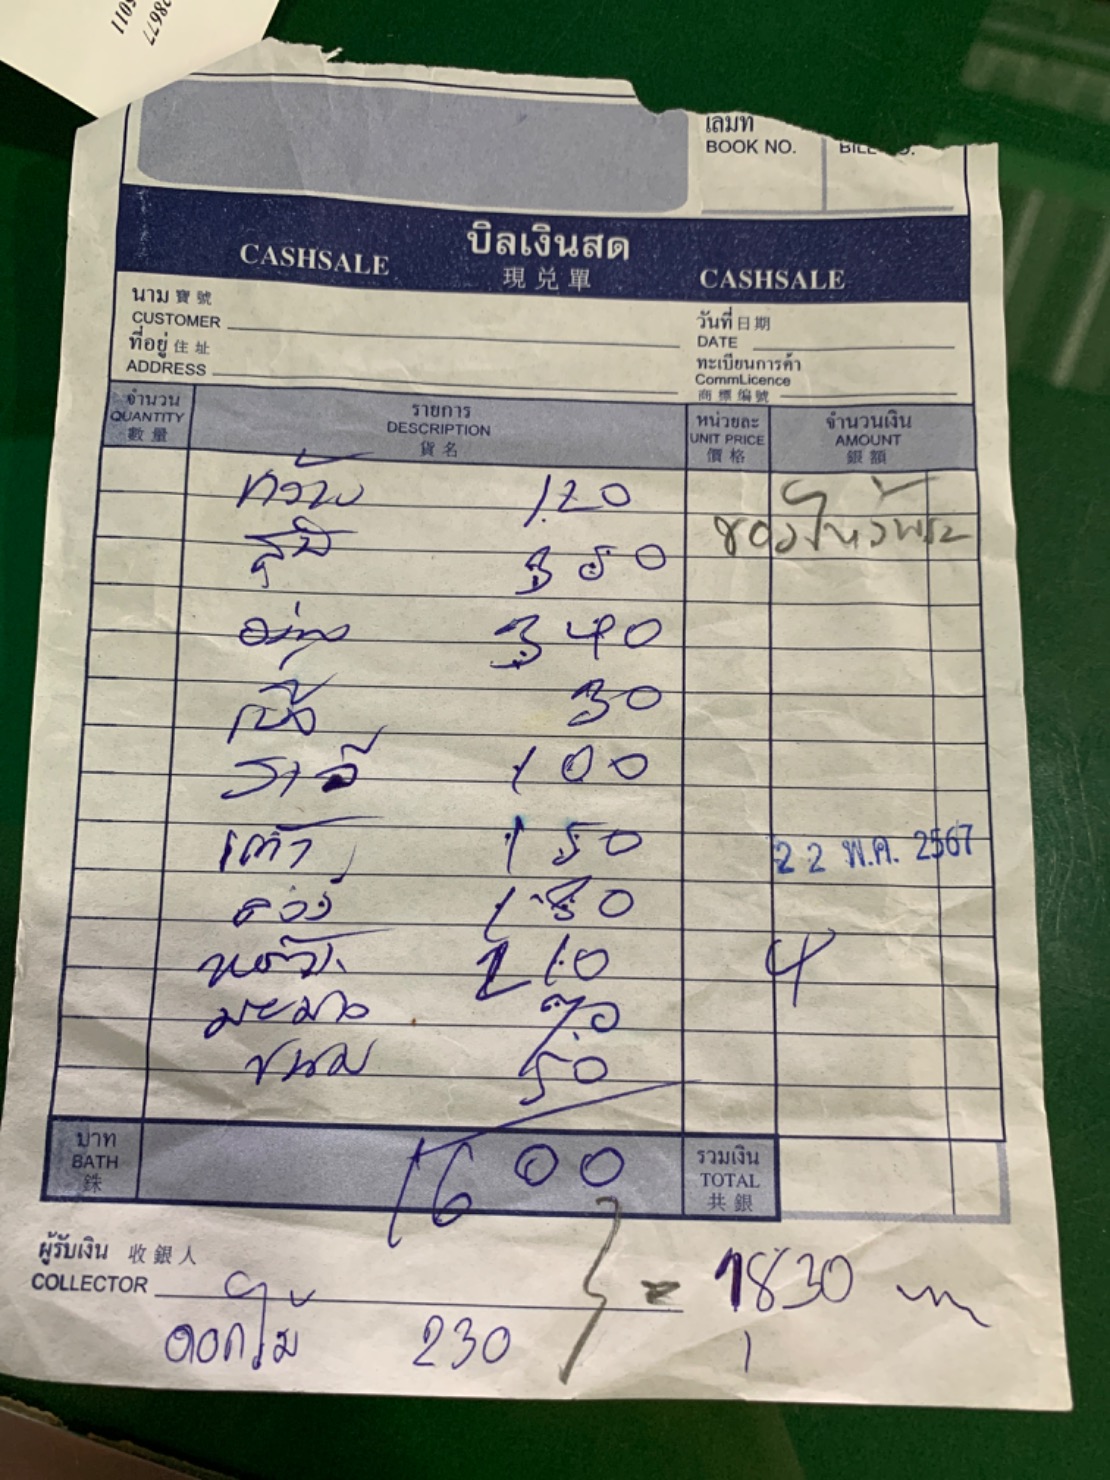 เล่มที่
BOOK NO.
BILL NO.
บิลเงินสด
CASHSALE 現兌單 CASHSALE
นาม 寶號
CUSTOMER
วันที่ 日期
DATE
ที่อยู่ 住址
ADDRESS
ทะเบียนการค้า
CommLicence
商標編號
จำนวน
QUANTITY
數量
รายการ
DESCRIPTION
貨名
หน่วยละ
UNIT PRICE
價格
จำนวนเงิน
AMOUNT
銀額
120
ของไหว้พระ
350
องุ่น 340
30
100
150
180
210
มะม่วง 70
ขนม 50
22 พ.ค. 2567
4
บาท
BATH
銖
1600
รวมเงิน
TOTAL
共銀
ผู้รับเงิน 收銀人
COLLECTOR
= 1830
ดอกไม้ 230